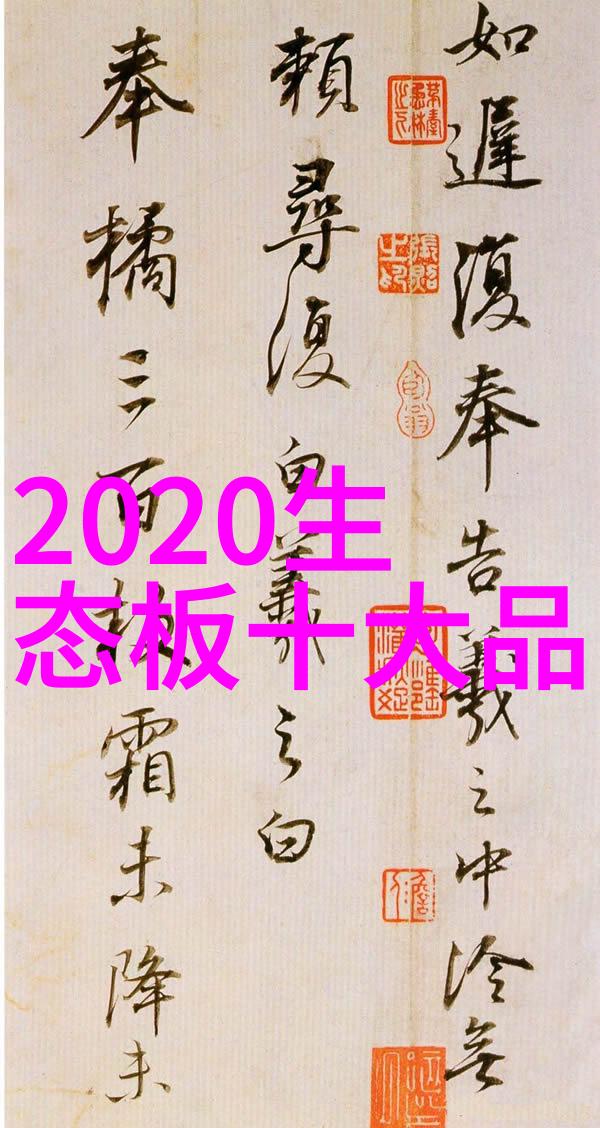 如遲復奉告羲之中冷無
賴尋復白羲之白
奉橘三百枚霜未降未
2020生
态板十大品